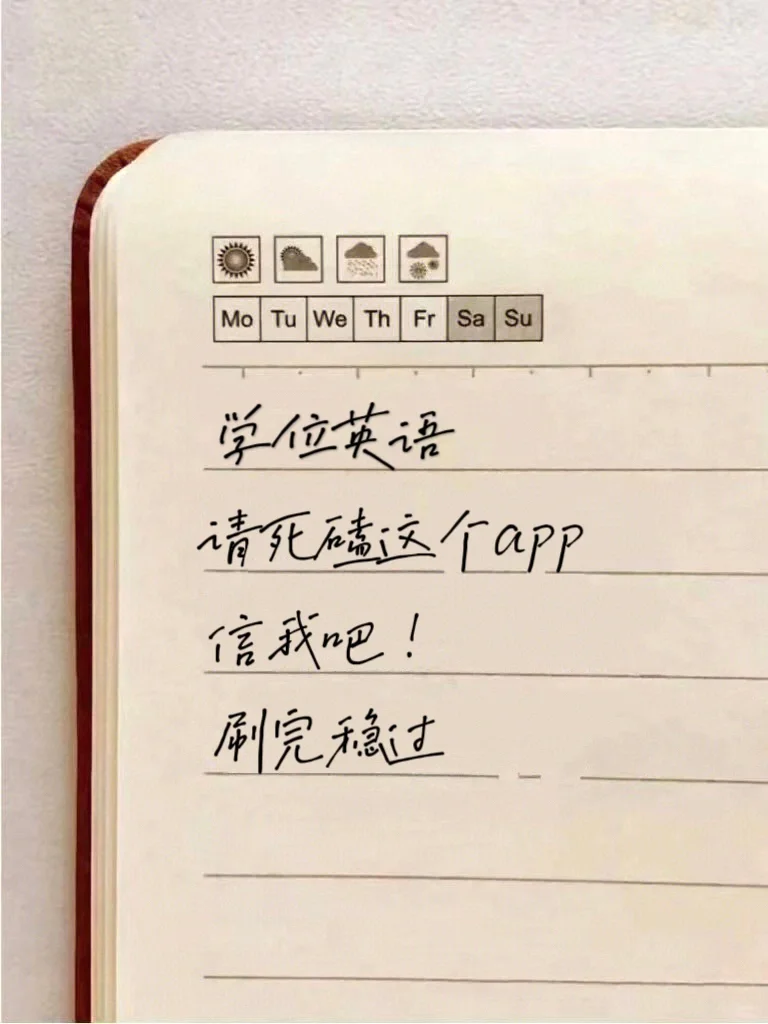 Mo Tu We Th Fr Sa Su
学位英语
请死磕这个app
信我吧！
刷完稳过